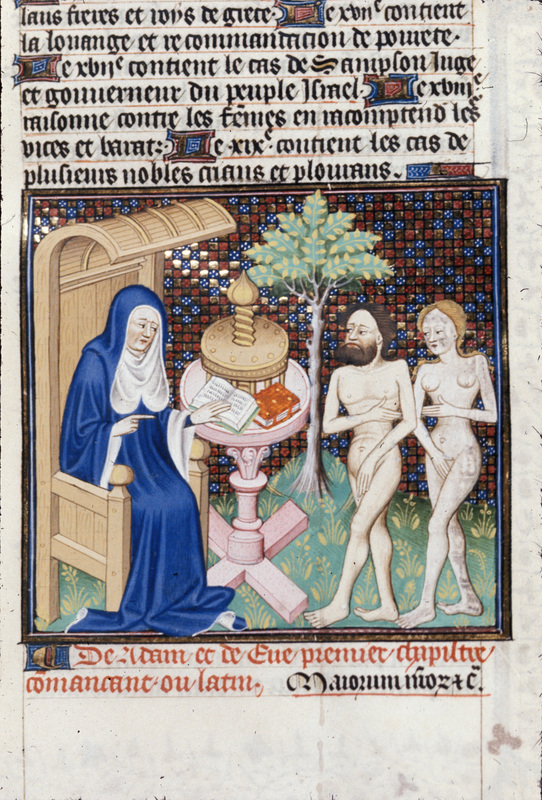 laus freres et roys de grece. Le xvi͏ᵉ contient
la louange et recommantacion de pourete.
Le xvijᵉ contient le cas de Sampson Iuge
et gouuerneur du peuple Israel. Le xviijᵉ
raisonne contre les fẽmes en racomptend les
vices et barat: Le xixᵉ contient les cas de
plusieurs nobles cueurs et plourans.
De Adam et de Eue premier chapiltre
cõmancant ou latin. Maiorum